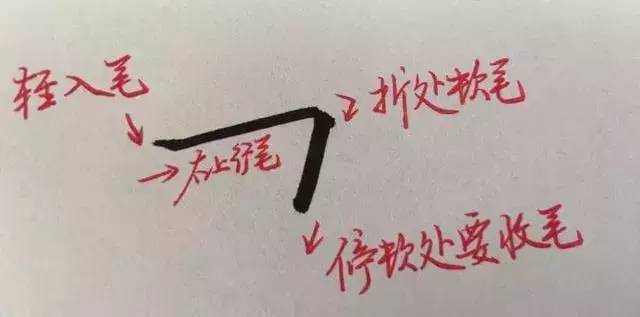 轻入笔
折处软笔
右上行笔
停软处要收笔